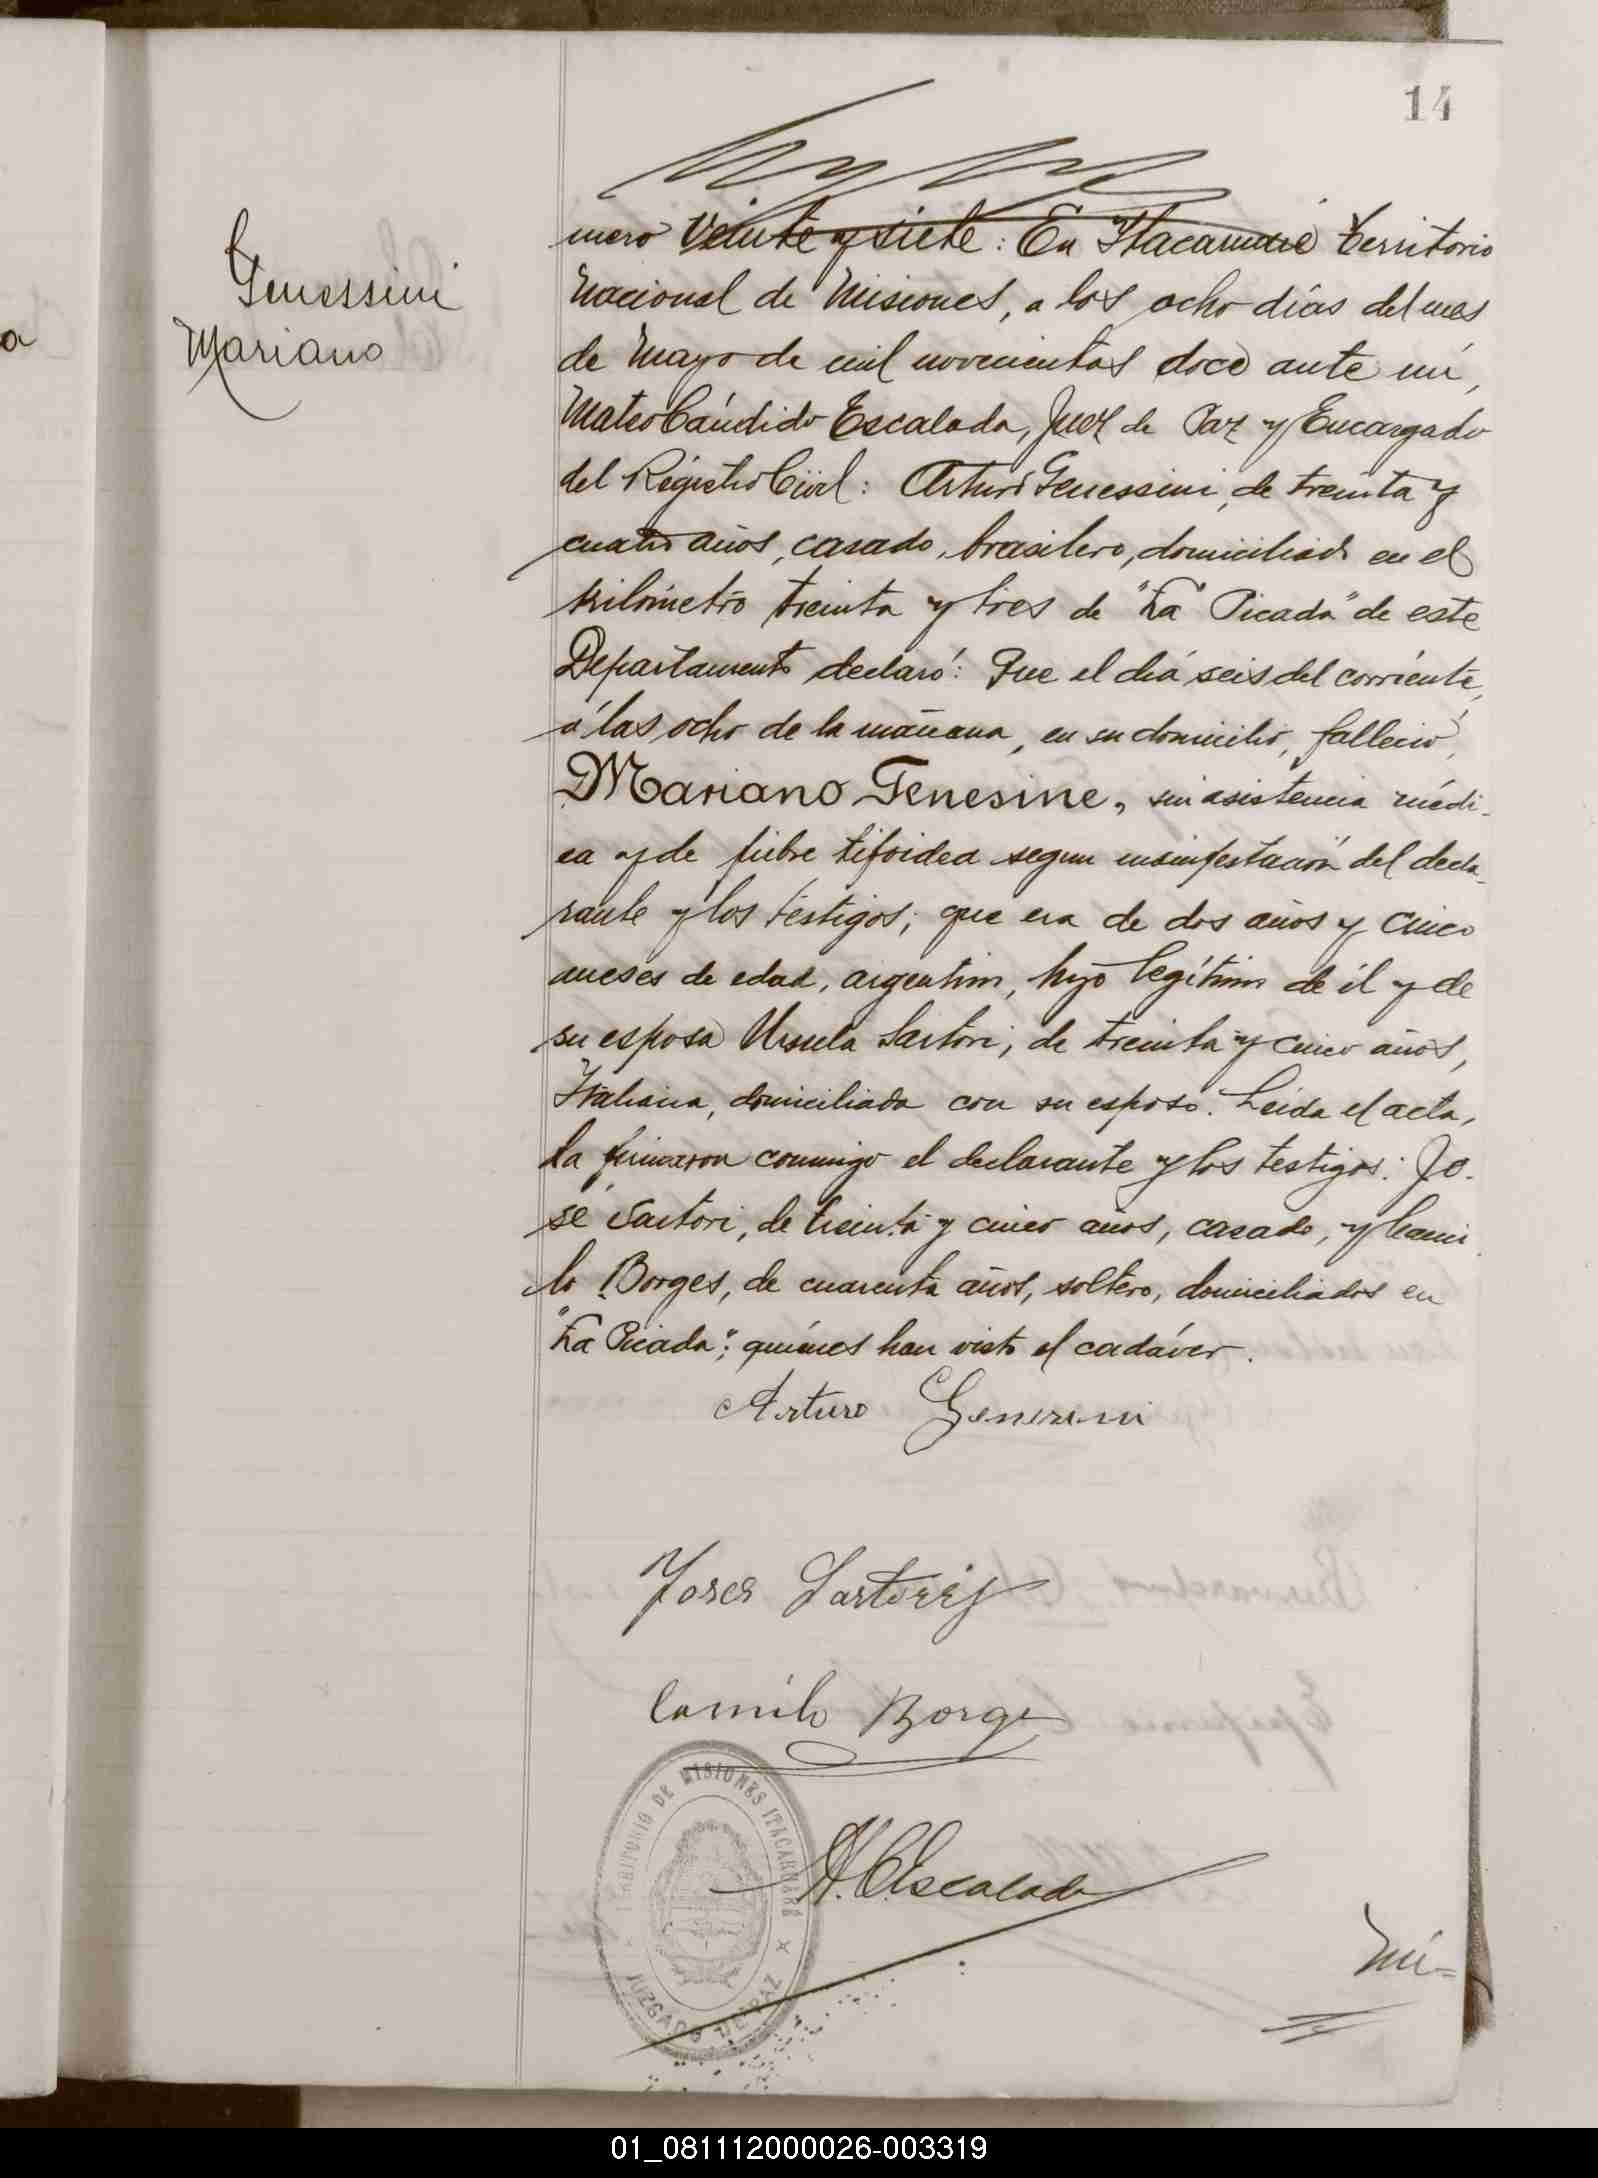 14
a
Genessini
Mariano
mero Veinte y siete: En Itacaruaré territorio
Nacional de Misiones, a los ocho días del mes
de Mayo de mil novecientos doce ante mí,
Mateo Cándido Escalada, Juez de Paz y Encargado
del Registro Civil: Arturo Genessini, de treinta y
cuatro años, casado, brasilero, domiciliado en el
kilómetro treinta y tres de "La Picada" de este
Departamento declaró: Que el día seis del corriente,
á las ocho de la mañana, en su domicilio, falleció,
Mariano Genesine, sin asistencia médi-
ca y de fiebre tifoidea segun manifestación del decla-
rante y los testigos; que era de dos años y cinco
meses de edad, argentino, hijo legítimo de él y de
su esposa Ursula Sartori, de treinta y cinco años,
Italiana, domiciliada con su esposo. Leida el acta,
la firmaron conmigo el declarante y los testigos: Jo-
sé Sartori, de treinta y cinco años, casado, y Cami
lo Borges, de cuarenta años, soltero, domiciliados en
"La Picada"; quiénes han visto el cadáver.
Arturo Genesini
Camilo Borge
M. C. Escalada
TERRITORIO DE MISIONES ITACARUARÉ
JUZGADO DE PAZ
Nú=
01_081112000026-003319